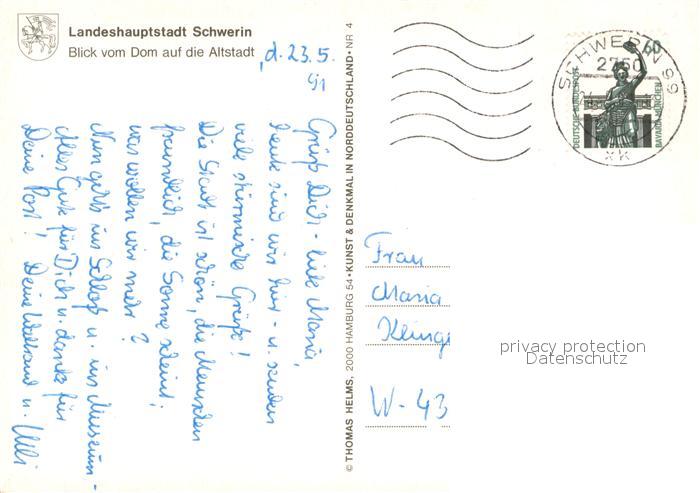 Landeshauptstadt Schwerin
Blick vom Dom auf die Altstadt
d. 23.5.
91
Grüß Dich - liebe Maria,
heute sind wir hier - u. senden
viele stürmische Grüße!
Die Stadt ist schön, die Menschen
freundlich, die Sonne scheint,
was wollen wir mehr?
Nun geht's ins Schloß u. ins Museum -
Alles Gute für Dich u. danke für
Deine Post! Deine Waltraud u. Ulli
© THOMAS HELMS, 2000 HAMBURG 54 • KUNST & DENKMAL IN NORDDEUTSCHLAND • NR 4
SCHWERIN 99
2750
xk
60
DEUTSCHE BUNDESPOST
BAVARIA MÜNCHEN
Frau
Maria
W-43
privacy protection
Datenschutz